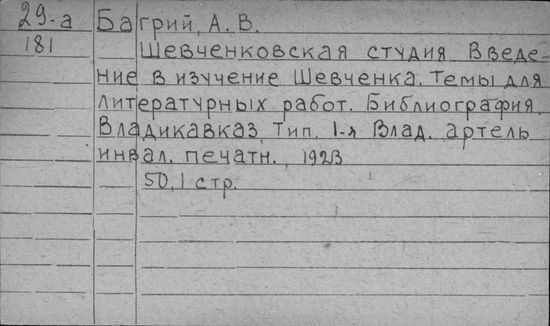 29-а Багрий, А. В.
181 Шевченковская студия Введе-
ние в изучение Шевченка. Темы для
литературных работ. Библиография.
Владикавказ, Тип. 1-я Влад. артель
инвал. печатн., 1923
50,1 стр.